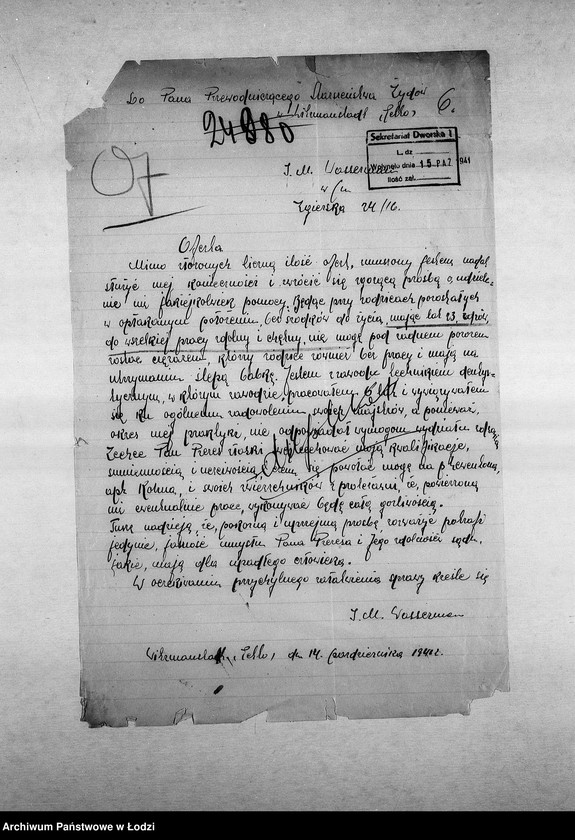 Do Pana Przewodniczącego Starszeństwa Żydów
w Litzmannstadt, Getto,
6.
24880
Sekretariat Dworska 1
L. dz
Wpłynęło dnia 15 PAZ 1941
Ilość zał.
J. M. Wasserman
w/m
Zgierska 24/16.
Oferta
Mimo złożonych liczną ilość ofert, zmuszony jestem nadal
służyć mej konieczności i zwrócić się gorącą prośbą o udziele-
nie mi jakiejkolwiek pomocy. Będąc przy rodzicach pozostałych
w opłakanym położeniu, bez środków do życia, mając lat 23, zdrów,
do wszelkiej pracy zdolny i chętny, nie mogę pod żadnym pozorem
zostać ciężarem, który rodzice również bez pracy i mają na
utrzymaniu ślepą babkę. Jestem z zawodu technikiem dentys-
tycznym, w którym zawodzie pracowałem 6 lat i wywiązywałem
się ku ogólnemu zadowoleniu swoich majstrów, a ponieważ,
okres mej praktyki, nie odpowiadał wymogom wydziału zdrowia
Zechce Pan Prezes łaski moją kwalifikację,
sumiennością i uczciwością, się powołać mogę na p.
apt. Kohna, i swoich zwierzchników z protetarni, że, powierzoną
mi ewentualnie pracę, wykonywać będę całą gorliwością.
Tuszę nadzieją, że, pokorną i uprzejmą prośbę rozważyć potrafi
jedynie, jasność umysłu Pana Prezesa i Jego zdolności sądu,
jakie, mają dla upadłego człowieka.
W oczekiwaniu przychylnego załatwienia sprawy kreślę się
J. M. Wasserman
Litzmannstadt, Getto, dn 14. Października 1941r.
Archiwum Państwowe w Łodzi